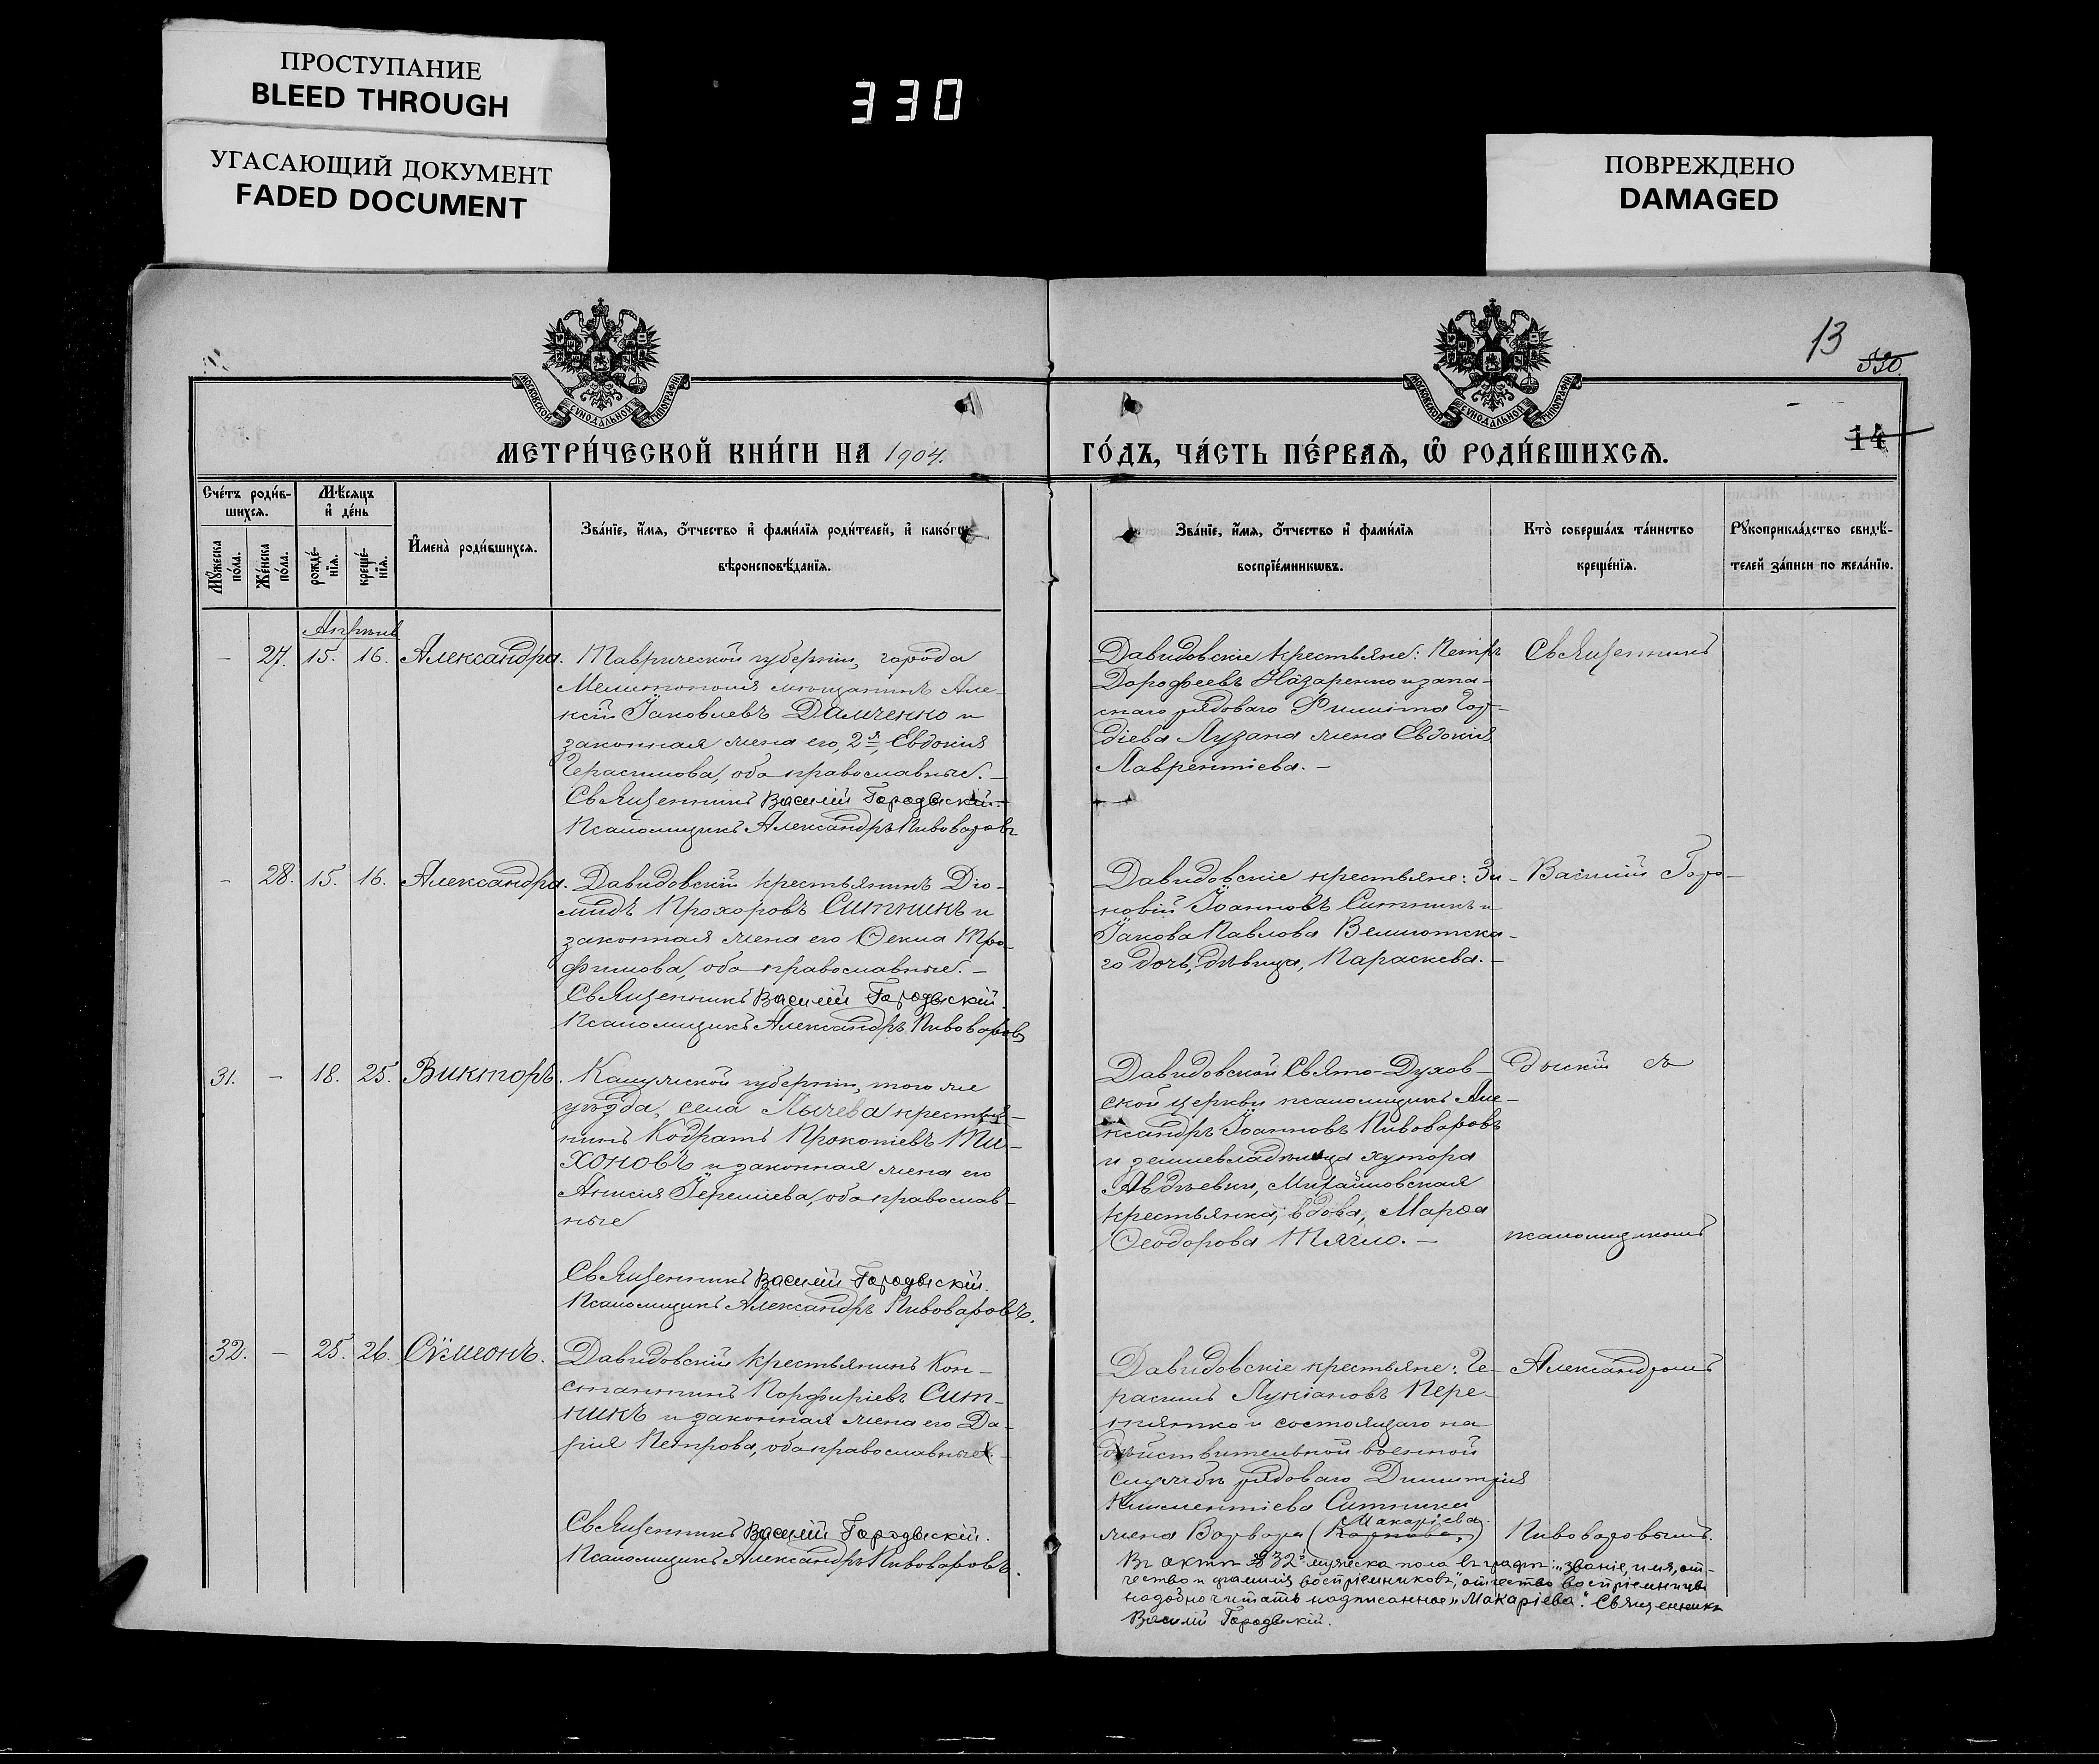 ПРОСТУПАНИЕ
BLEED THROUGH
УГАСАЮЩИЙ ДОКУМЕНТ
FADED DOCUMENT
330
ПОВРЕЖДЕНО
DAMAGED
13
330.
14
МОСКОВСКОЙ СѴНОДАЛЬНОЙ ТИПОГРАФІИ
МОСКОВСКОЙ СѴНОДАЛЬНОЙ ТИПОГРАФІИ
МЕТРИ́ЧЕСКОЙ КНИ́ГИ НА 1904.
ГО́ДЪ, ЧА́СТЬ ПЕ́РВАѦ, Ѡ РОДИ́ВШИХСѦ.
Сче́тъ роди́в-
шихсѧ.
Мꙋ́жеска по́ла.
Же́нска по́ла.
Мѣ́сяцъ
и҆ де́нь
рожде́-
нїѧ.
креще́-
нїѧ.
И҆мена̀ роди́вшихсѧ.
Зва́нїе, и҆́мѧ, ѻ҆́тчество и҆ фами́лїѧ роди́телей, и҆ како́гѡ
вѣроисповѣ́данїѧ.
Зва́нїе, и҆́мѧ, ѻ҆́тчество и҆ фами́лїѧ
воспрїе́мникѡвъ.
Кто̀ соверша́лъ та́инство
креще́нїѧ.
Рꙋкоприкла́дство свидѣ́-
телей за́писи по жела́нїю.
Апрѣль
— 27. 15. 16. Александра.
Таврической губерніи, города
Мелитополя мѣщанинъ Але-
ксій Іаковлевъ Дамченко и
законная жена его, 2я, Евдокія
Герасимова, оба православные. —
Священникъ Василій Городыскій.
Псаломщикъ Александръ Пивоваровъ
Давидовскіе крестьяне: Петръ
Дорофеевъ Назаренко и запа-
снаго рядоваго Филиппа Гор-
діева Лузана жена Евдокія
Лаврентіева. —
Священникъ
— 28. 15. 16. Александра.
Давидовскій крестьянинъ Діо-
мидъ Прохоровъ Ситникъ и
законная жена его Ѳекла Тро-
фимова, оба православные. —
Священникъ Василій Городыскій.
Псаломщикъ Александръ Пивоваровъ
Давидовскіе крестьяне: Зи-
новій Іоанновъ Ситникъ и
Іакова Павлова
го дочь, дѣвица, Параскева. —
Василій Горо-
31. — 18. 25. Викторъ.
Калужской губерніи, того же
уѣзда, села крестья-
нинъ Кодратъ Прокопіевъ Ти-
хоновъ и законная жена его
Анисія Іереміева, оба православ-
ные
Священникъ Василій Городыскій.
Псаломщикъ Александръ Пивоваровъ.
Давидовской Свято-Духов-
ской церкви псаломщикъ Але-
ксандръ Іоанновъ Пивоваровъ
и землевладѣлица хутора
Авдѣевки, Михайловская
крестьянка, вдова, Марѳа
Ѳеодорова Тягло. —
дыскій съ
псаломщикомъ
32. — 25. 26. Сѷмеонъ.
Давидовскій крестьянинъ Кон-
стантинъ Порфиріевъ Сит-
никъ и законная жена его Да-
рія Петрова, оба православные. —
Священникъ Василій Городыскій.
Псаломщикъ Александръ Пивоваровъ.
Давидовскіе крестьяне: Ге-
расимъ Лукіановъ Пере-
пнятко и состоящаго на
дѣйствительной военной
службѣ рядоваго Димитрія
Климентіева Ситника
Макаріева.
жена Варвара (Карпова,)
Александромъ
Пивоваровымъ.
Въ актѣ № 32 мужеска пола въ графѣ: „званіе, имя, от-
чество и фамилія воспріемниковъ", отчество воспріемницы
надобно читать надписанное „Макаріева". Священникъ
Василій Городыскій.